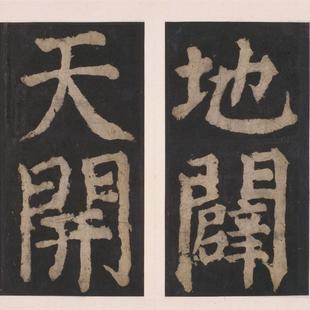 地闢
天開